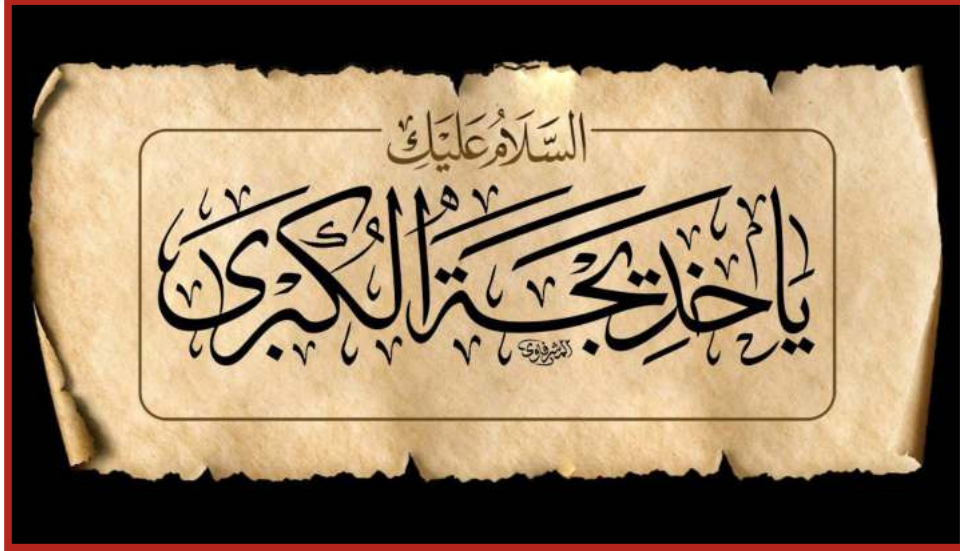 السَّلَامُ عَلَيْكِ
يَا خَدِيجَةُ الْكُبْرَى
الشرفاوي